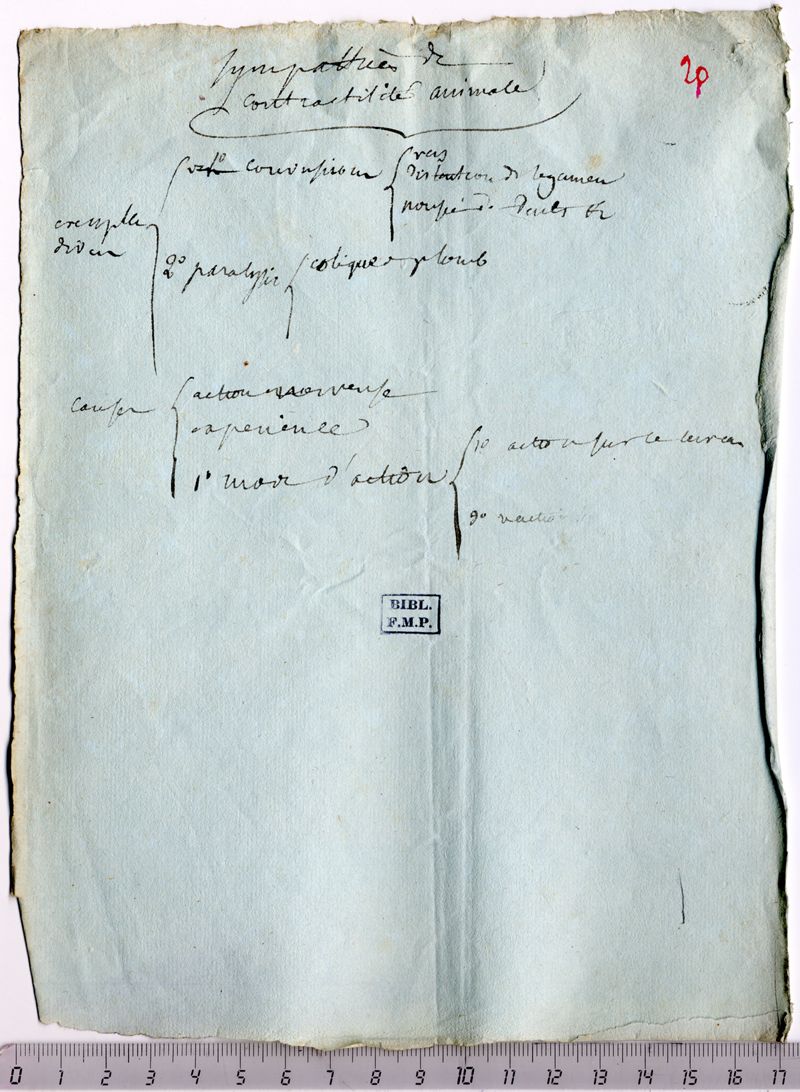 Sympathies de
contractilité animale
28
1º convulsions
vers
distention de ligamen
exemples
divers
2º paralysie
colique de plomb
causes
action nerveuse
experience
1º mode d'action
1º action sur le cerveau
2º reaction
BIBL.
F.M.P.
0 1 2 3 4 5 6 7 8 9 10 11 12 13 14 15 16 17